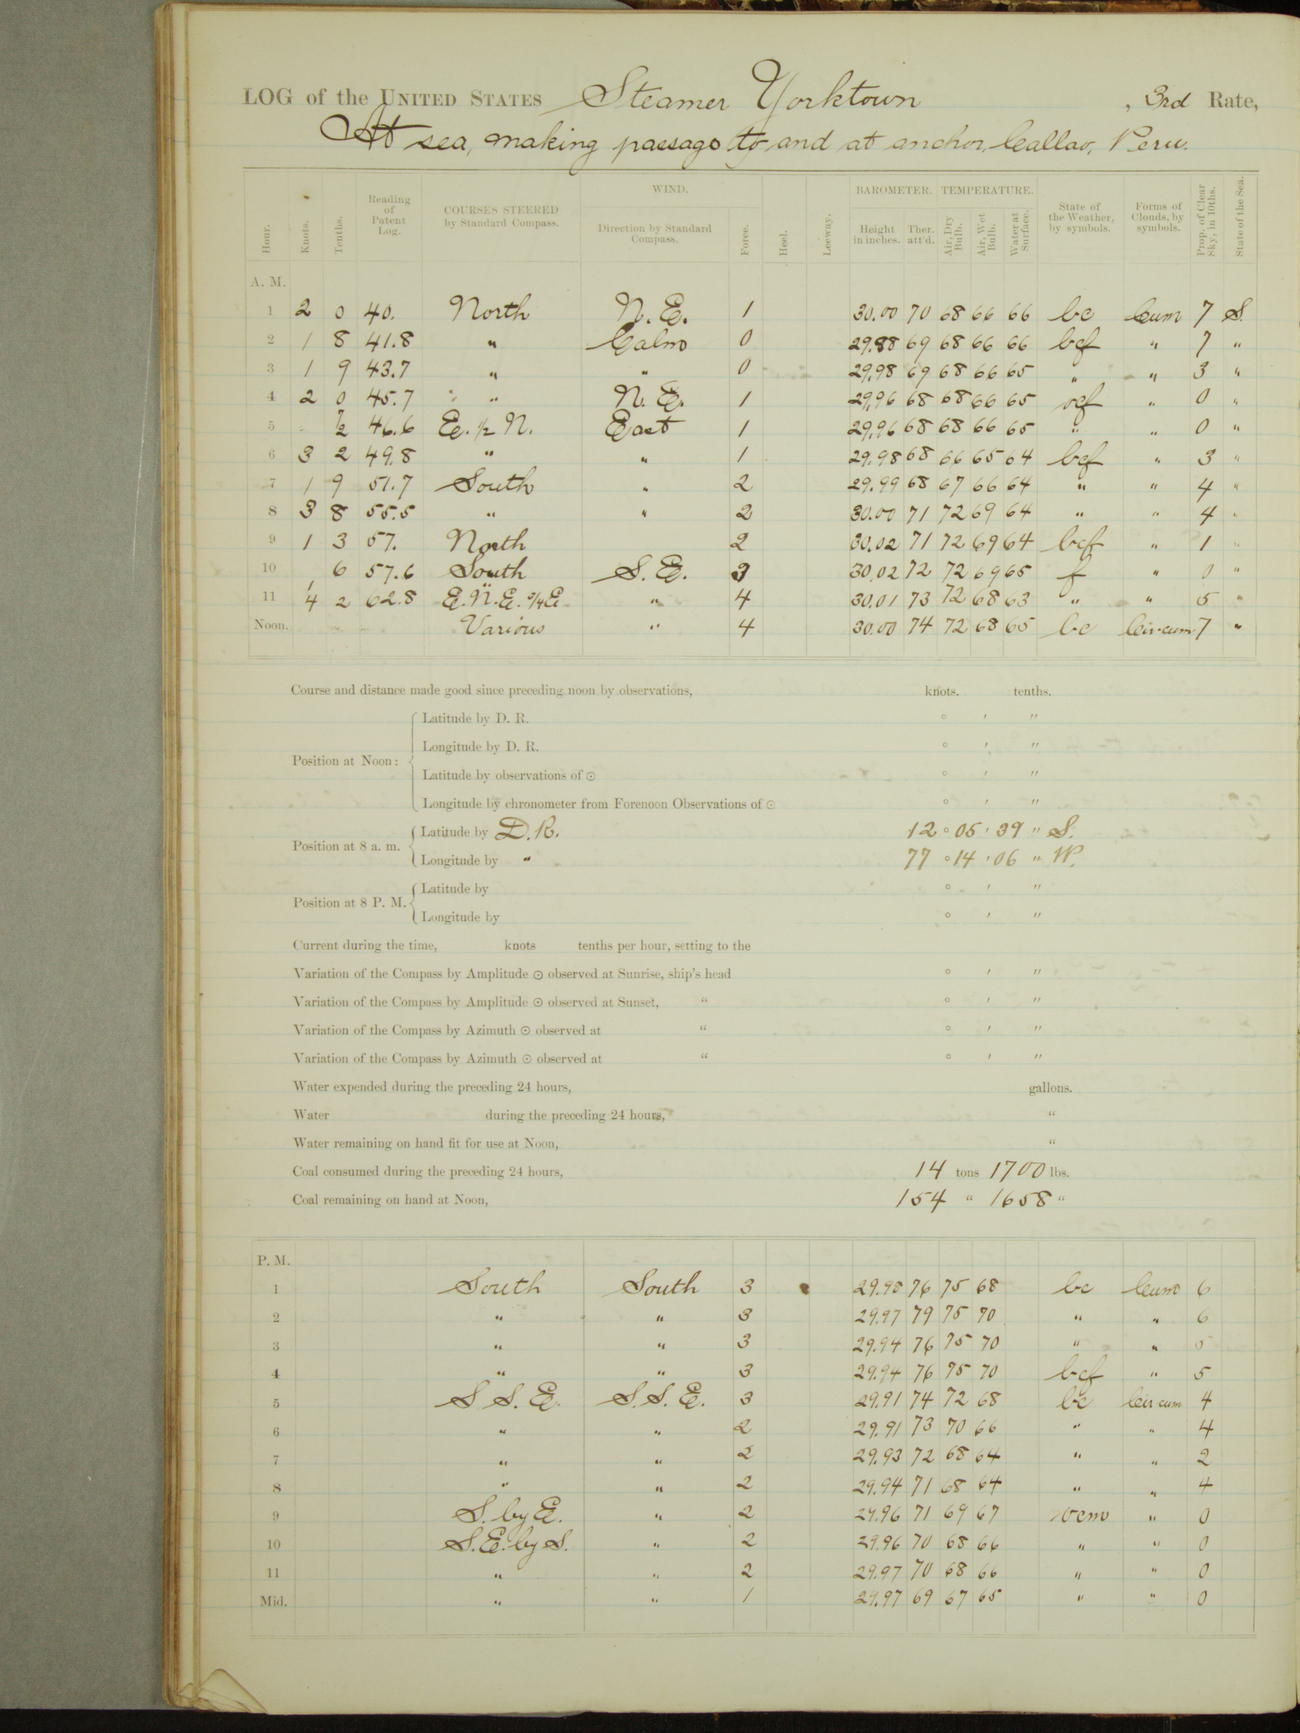 LOG of the UNITED STATES Steamer Yorktown, 3rd Rate,
At sea, making passage to and at anchor, Callao, Peru.
WIND. BAROMETER. TEMPERATURE.
Hour. Knots. Tenths. Reading of Patent Log. COURSES STEERED by Standard Compass. Direction by Standard Compass. Force. Heel. Leeway. Height in inches. Ther. att'd. Air, Dry Bulb. Air, Wet Bulb. Water at Surface. State of the Weather, by symbols. Forms of Clouds, by symbols. Prop. of Clear Sky, in 10ths. State of the Sea.
A. M.
1 2 0 40. North N.E. 1 30.00 70 68 66 66 bc Cum 7 S.
2 1 8 41.8 " Calm 0 29.98 69 68 66 66 bcf " 7 "
3 1 9 43.7 " " 0 29.98 69 68 66 65 " " 3 "
4 2 0 45.7 " N.E. 1 29.96 68 68 66 65 ocf " 0 "
5 46.6 E. 1/2 N. East 1 29.96 68 68 66 65 " " 0 "
6 3 2 49.8 " " 1 29.98 68 66 65 64 bcf " 3 "
7 1 9 51.7 South " 2 29.99 68 67 66 64 " " 4 "
8 3 8 55.5 " " 2 30.00 71 72 69 64 " " 4 "
9 1 3 57. North 2 30.02 71 72 69 64 bcf " 1 "
10 6 57.6 South S.E. 3 30.02 72 72 69 65 f " 0 "
11 4 2 62.8 E.N.E. 3/4 E " 4 30.01 73 72 68 63 " " 5 "
Noon. Various " 4 30.00 74 72 68 65 bc Cir-cum 7 "
Course and distance made good since preceding noon by observations, knots. tenths.
Latitude by D. R. ° ' "
Longitude by D. R. ° ' "
Position at Noon:
Latitude by observations of ☉ ° ' "
Longitude by chronometer from Forenoon Observations of ☉ ° ' "
Position at 8 a. m. Latitude by D.R. 12 ° 05 ' 39 " S.
Longitude by " 77 ° 14 ' 06 " W.
Position at 8 P. M. Latitude by ° ' "
Longitude by ° ' "
Current during the time, knots tenths per hour, setting to the
Variation of the Compass by Amplitude ☉ observed at Sunrise, ship's head ° ' "
Variation of the Compass by Amplitude ☉ observed at Sunset, " ° ' "
Variation of the Compass by Azimuth ☉ observed at " ° ' "
Variation of the Compass by Azimuth ☉ observed at " ° ' "
Water expended during the preceding 24 hours, gallons.
Water during the preceding 24 hours, "
Water remaining on hand fit for use at Noon, "
Coal consumed during the preceding 24 hours, 14 tons 1700 lbs.
Coal remaining on hand at Noon, 154 " 1658 "
P. M.
1 South South 3 29.98 76 75 68 bc Cum 6
2 " " 3 29.97 79 75 70 " " 6
3 " " 3 29.94 76 75 70 " " 5
4 " " 3 29.94 76 75 70 bcf " 5
5 S S. E. S.S.E. 3 29.91 74 72 68 bc Cir cum 4
6 " " 2 29.91 73 70 66 " " 4
7 " " 2 29.93 72 68 64 " " 2
8 " " 2 29.94 71 68 64 " " 4
9 S. by E. " 2 29.96 71 69 67 ocm " 0
10 S.E. by S. " 2 29.96 70 68 66 " " 0
11 " " 2 29.97 70 68 66 " " 0
Mid. " " 1 29.97 69 67 65 " " 0